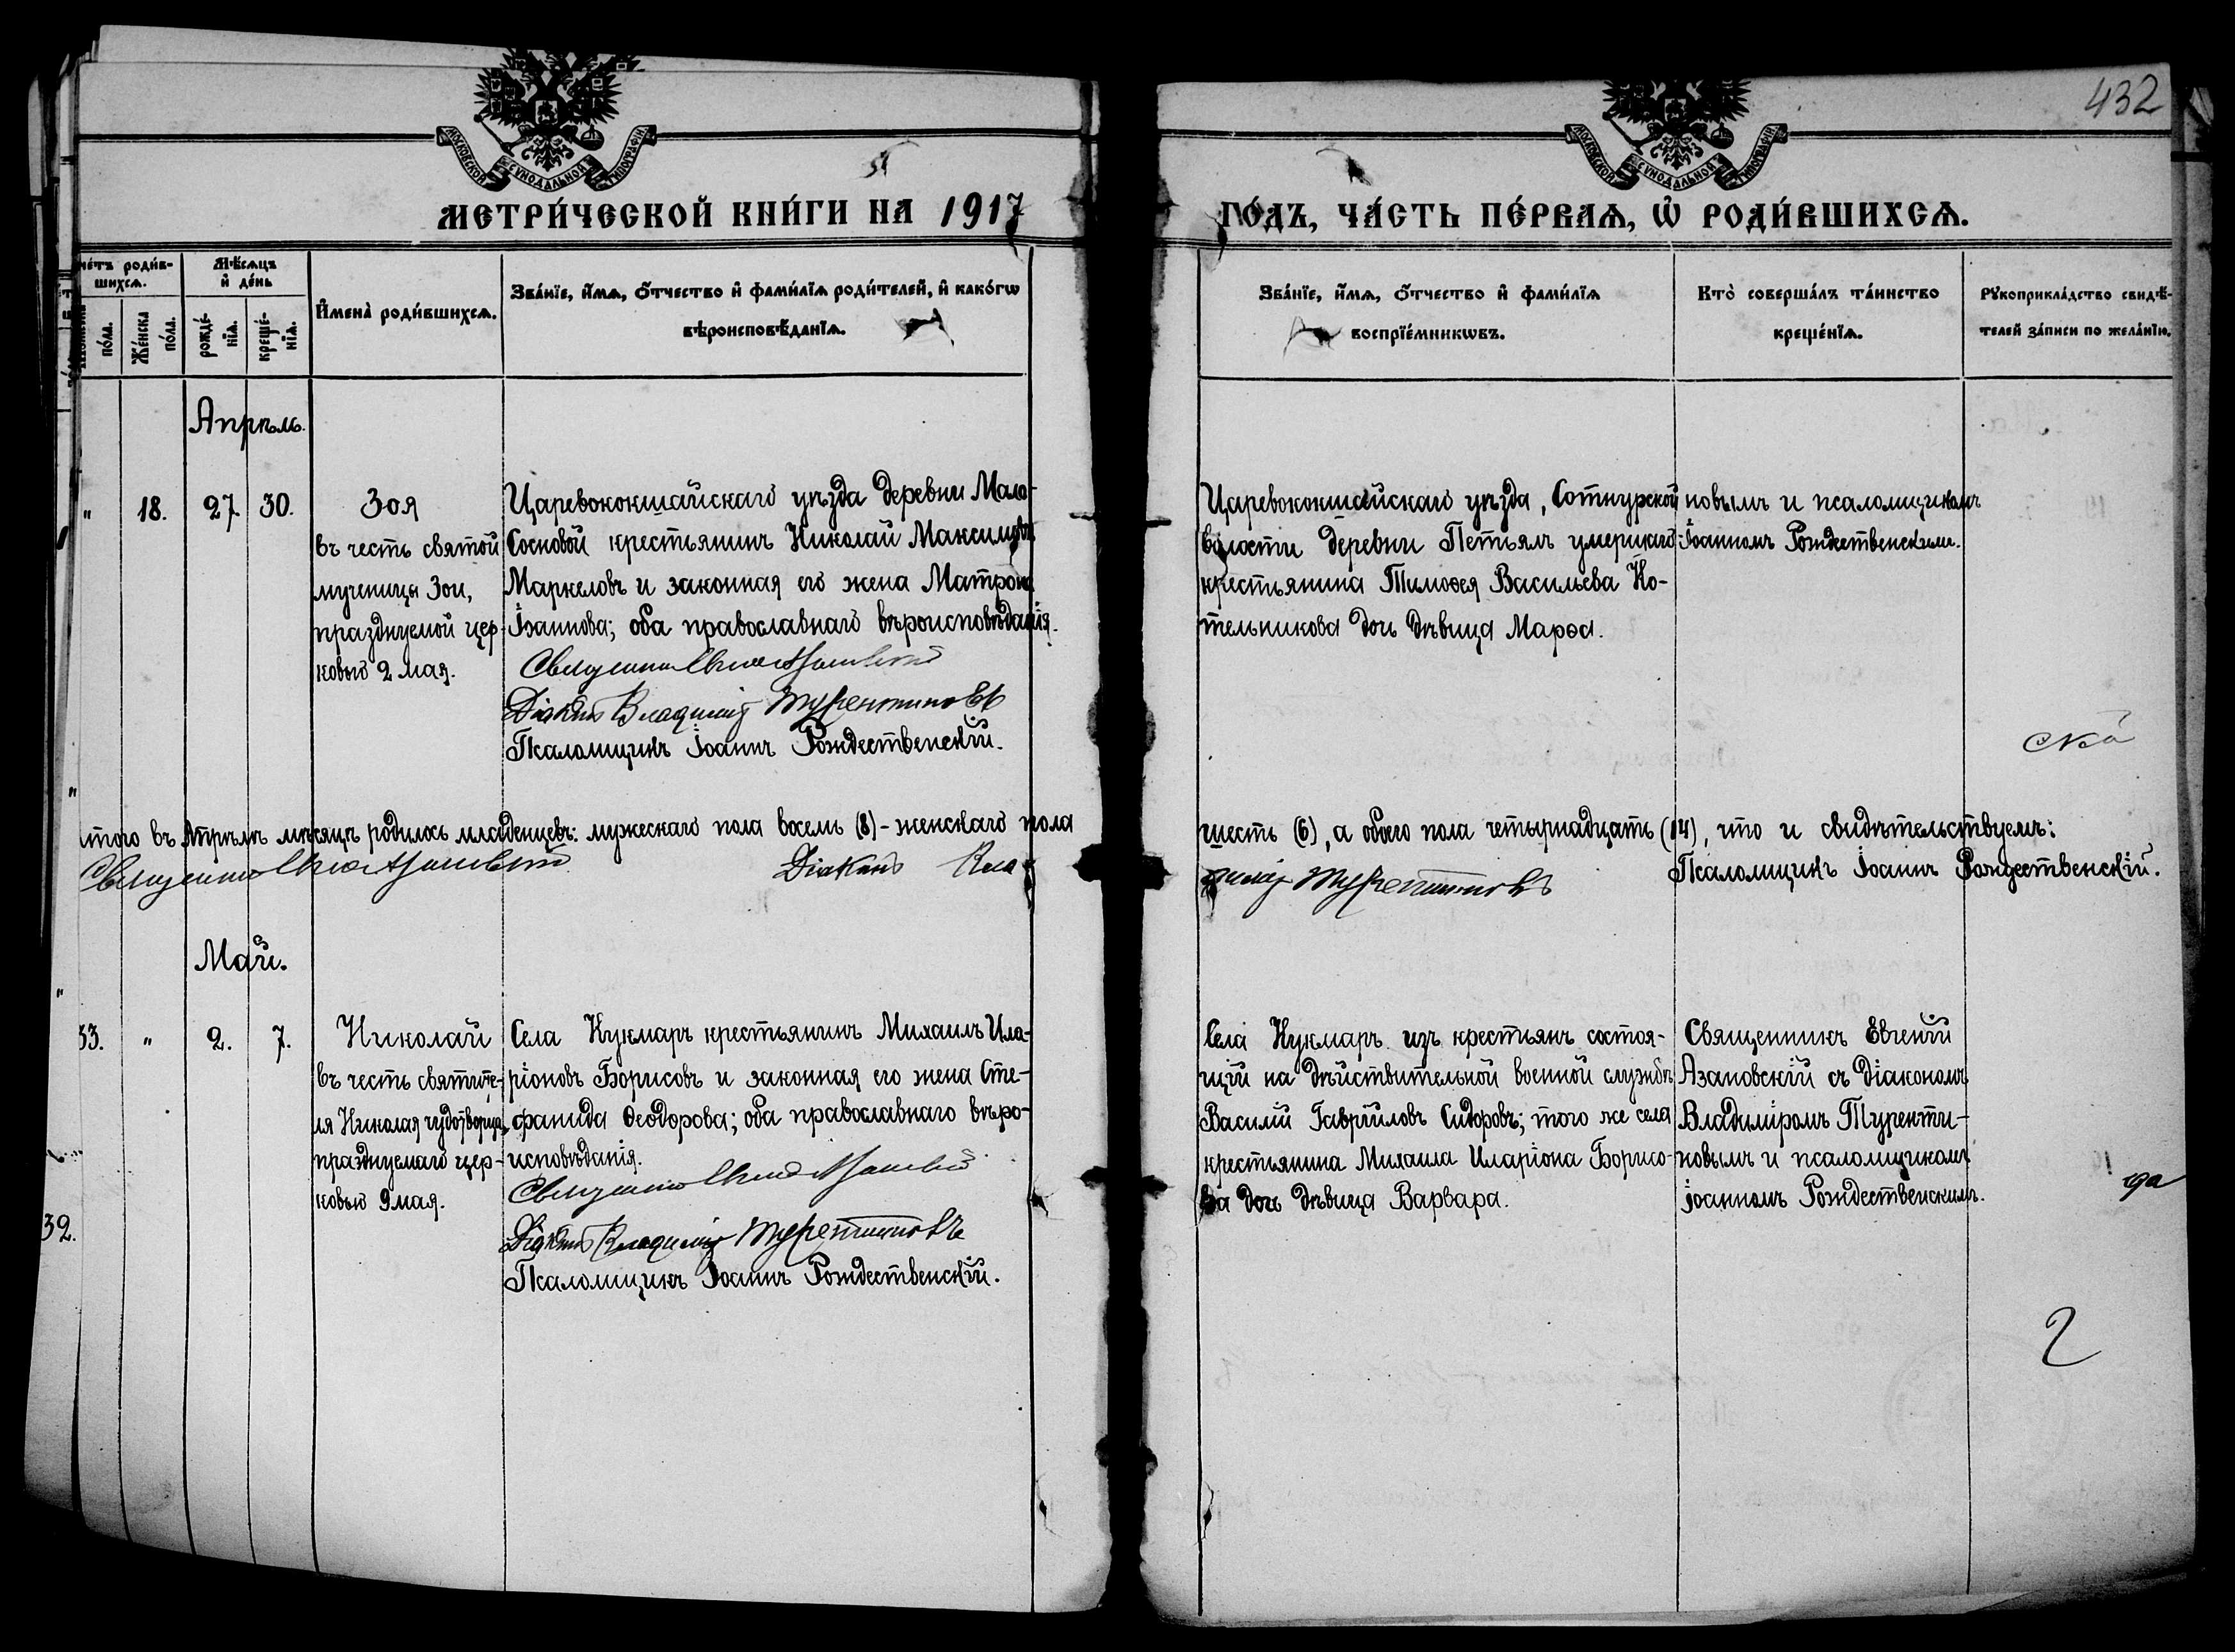 432
МОСКОВСКОЙ СѴНОДАЛЬНОЙ ТИПОГРАФІИ
МОСКОВСКОЙ СѴНОДАЛЬНОЙ ТИПОГРАФІИ
МЕТРИ́ЧЕСКОЙ КНИ́ГИ НА 1917
ГО́ДЪ, ЧА́СТЬ ПЕ́РВАѦ, Ѽ РОДИ́ВШИХСѦ.
че́тъ роди́в-
шихсѧ.
по́ла.
Же́нска
по́ла.
Мѣ́сѧцъ
и҆ де́нь
рожде́-
нїѧ.
креще́-
нїѧ.
И҆мена̀ роди́вшихсѧ.
Зва́нїе, и҆́мѧ, ѻ҆́тчество и҆ фами́лїѧ роди́телей, и҆ како́гѡ
вѣроисповѣ́данїѧ.
Зва́нїе, и҆́мѧ, ѻ҆́тчество и҆ фами́лїѧ
воспрїе́мникѡвъ.
Кто̀ соверша́лъ та́инство
креще́нїѧ.
Рꙋкоприкла́дство свидѣ́-
телей за́писи по жела́нїю.
Апрѣль.
" 18. 27 30.
Зоя
въ честь святой
мученицы Зои,
празднуемой цер-
ковью 2 мая.
Царевококшайскаго уѣзда деревни Мало-
Сосновой крестьянинъ Николай Максимовъ
Маркеловъ и законная его жена Матрона
Іоаннова; оба православнаго вѣроисповѣданія.
Священникъ
Діаконъ Владиміръ Турентиновъ
Псаломщикъ Іоаннъ Рождественскій.
Царевококшайскаго уѣзда, Сотнурской
волости деревни Петьялъ умершаго
крестьянина Тимоѳея Васильева Ко-
тельникова дочь дѣвица Марѳа.
новымъ и псаломщикомъ
Іоанномъ Рождественскимъ.
итого въ Апрѣлѣ мѣсяцѣ родилось младенцевъ: мужескаго пола восемь (8) - женскаго пола
шесть (6), а обоего пола четырнадцать (14), что и свидѣтельствуемъ:
Священникъ Діаконъ Вла-
диміръ Турентиновъ
Псаломщикъ Іоаннъ Рождественскій.
Май.
33. " 2. 7.
Николай
въ честь святите-
ля Николая чудотворца,
празднуемаго цер-
ковью 9 мая.
Села Кукмаръ крестьянинъ Михаилъ Ила-
ріоновъ Борисовъ и законная его жена Сте-
фанида Ѳеодорова; оба православнаго вѣро-
исповѣданія.
Священникъ
Діаконъ Владиміръ Турентиновъ
Псаломщикъ Іоаннъ Рождественскій.
Села Кукмаръ изъ крестьянъ состоя-
щій на дѣйствительной военной службѣ
Василій Гавріиловъ Сидоровъ; того же села
крестьянина Михаила Иларіона Борисо-
ва дочь дѣвица Варвара.
Священникъ Евгеній
Азановскій съ діакономъ
Владиміромъ Туренти-
новымъ и псаломщикомъ
Іоанномъ Рождественскимъ.
32.
2